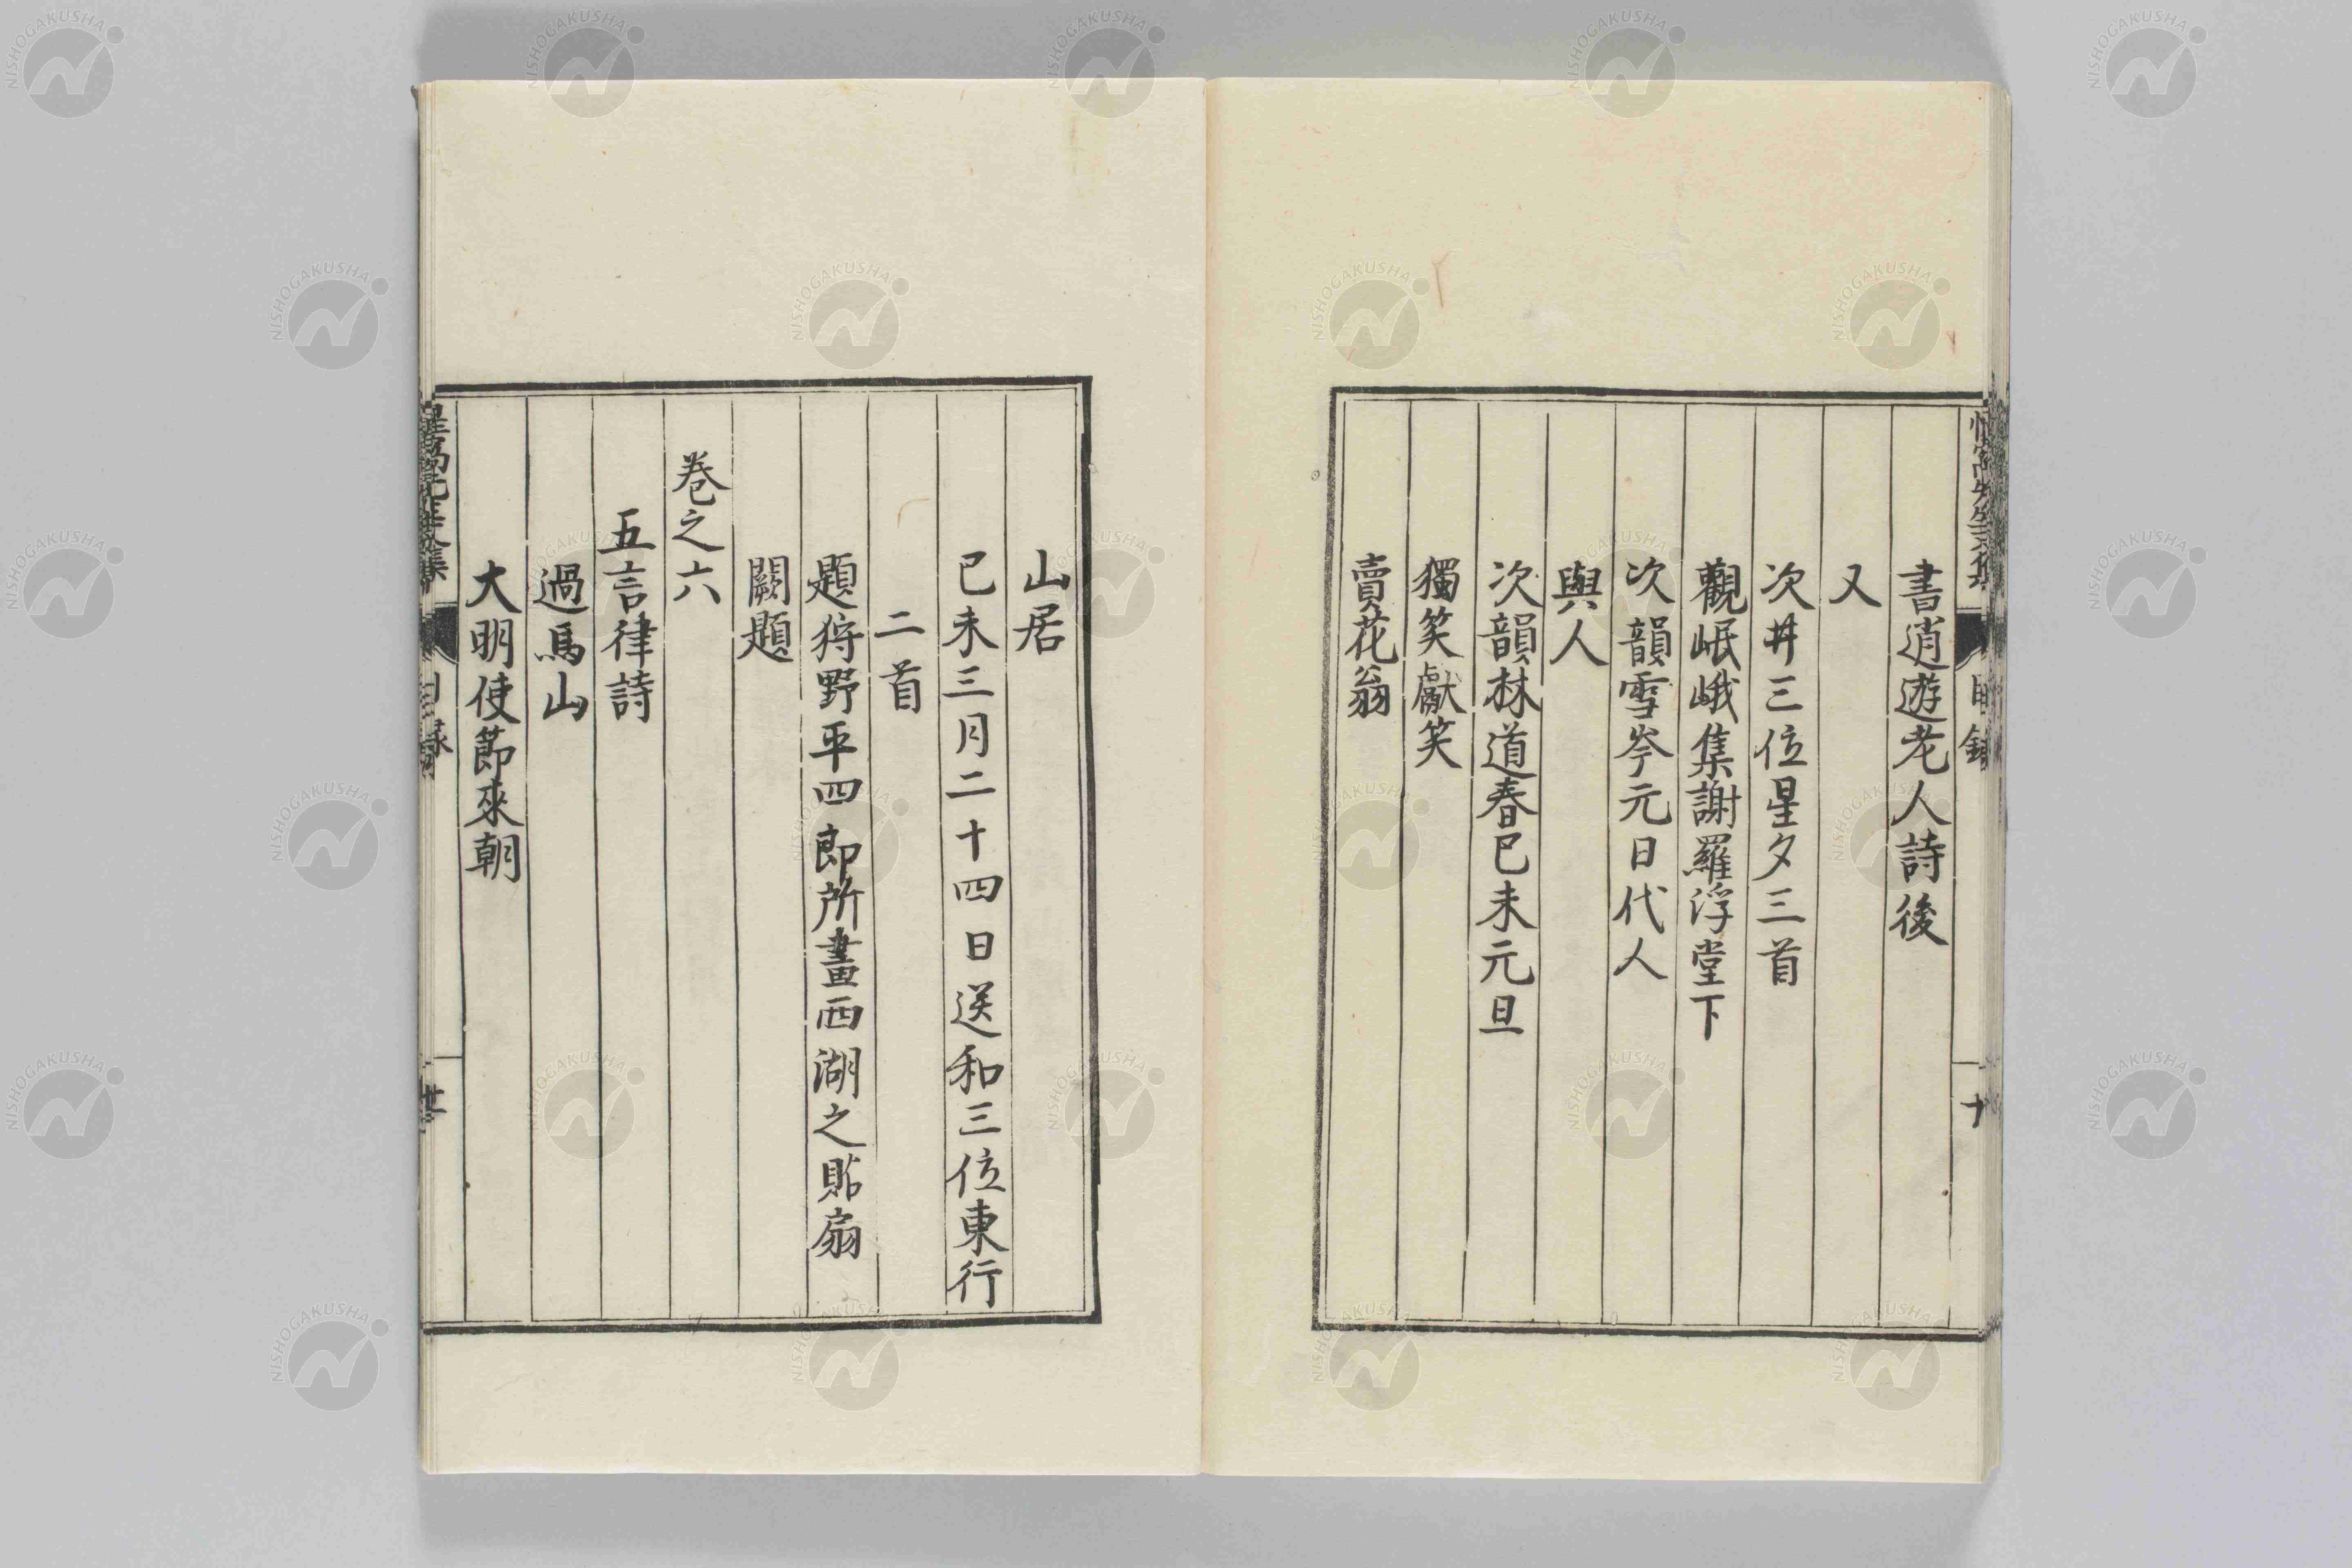 書逍遊老人詩後
又
次丼三位星夕三首
觀岷峨集謝羅浮堂下
次韻雪岑元日代人
與人
次韻林道春已未元旦
獨笑獻笑
賣花翁
山居
已未三月二十四日送和三位東行
二首
題狩野平四郎所畫西湖之貼扇
闕題
卷之六
五言律詩
過馬山
大明使節來朝
NISHOGAKUSHA